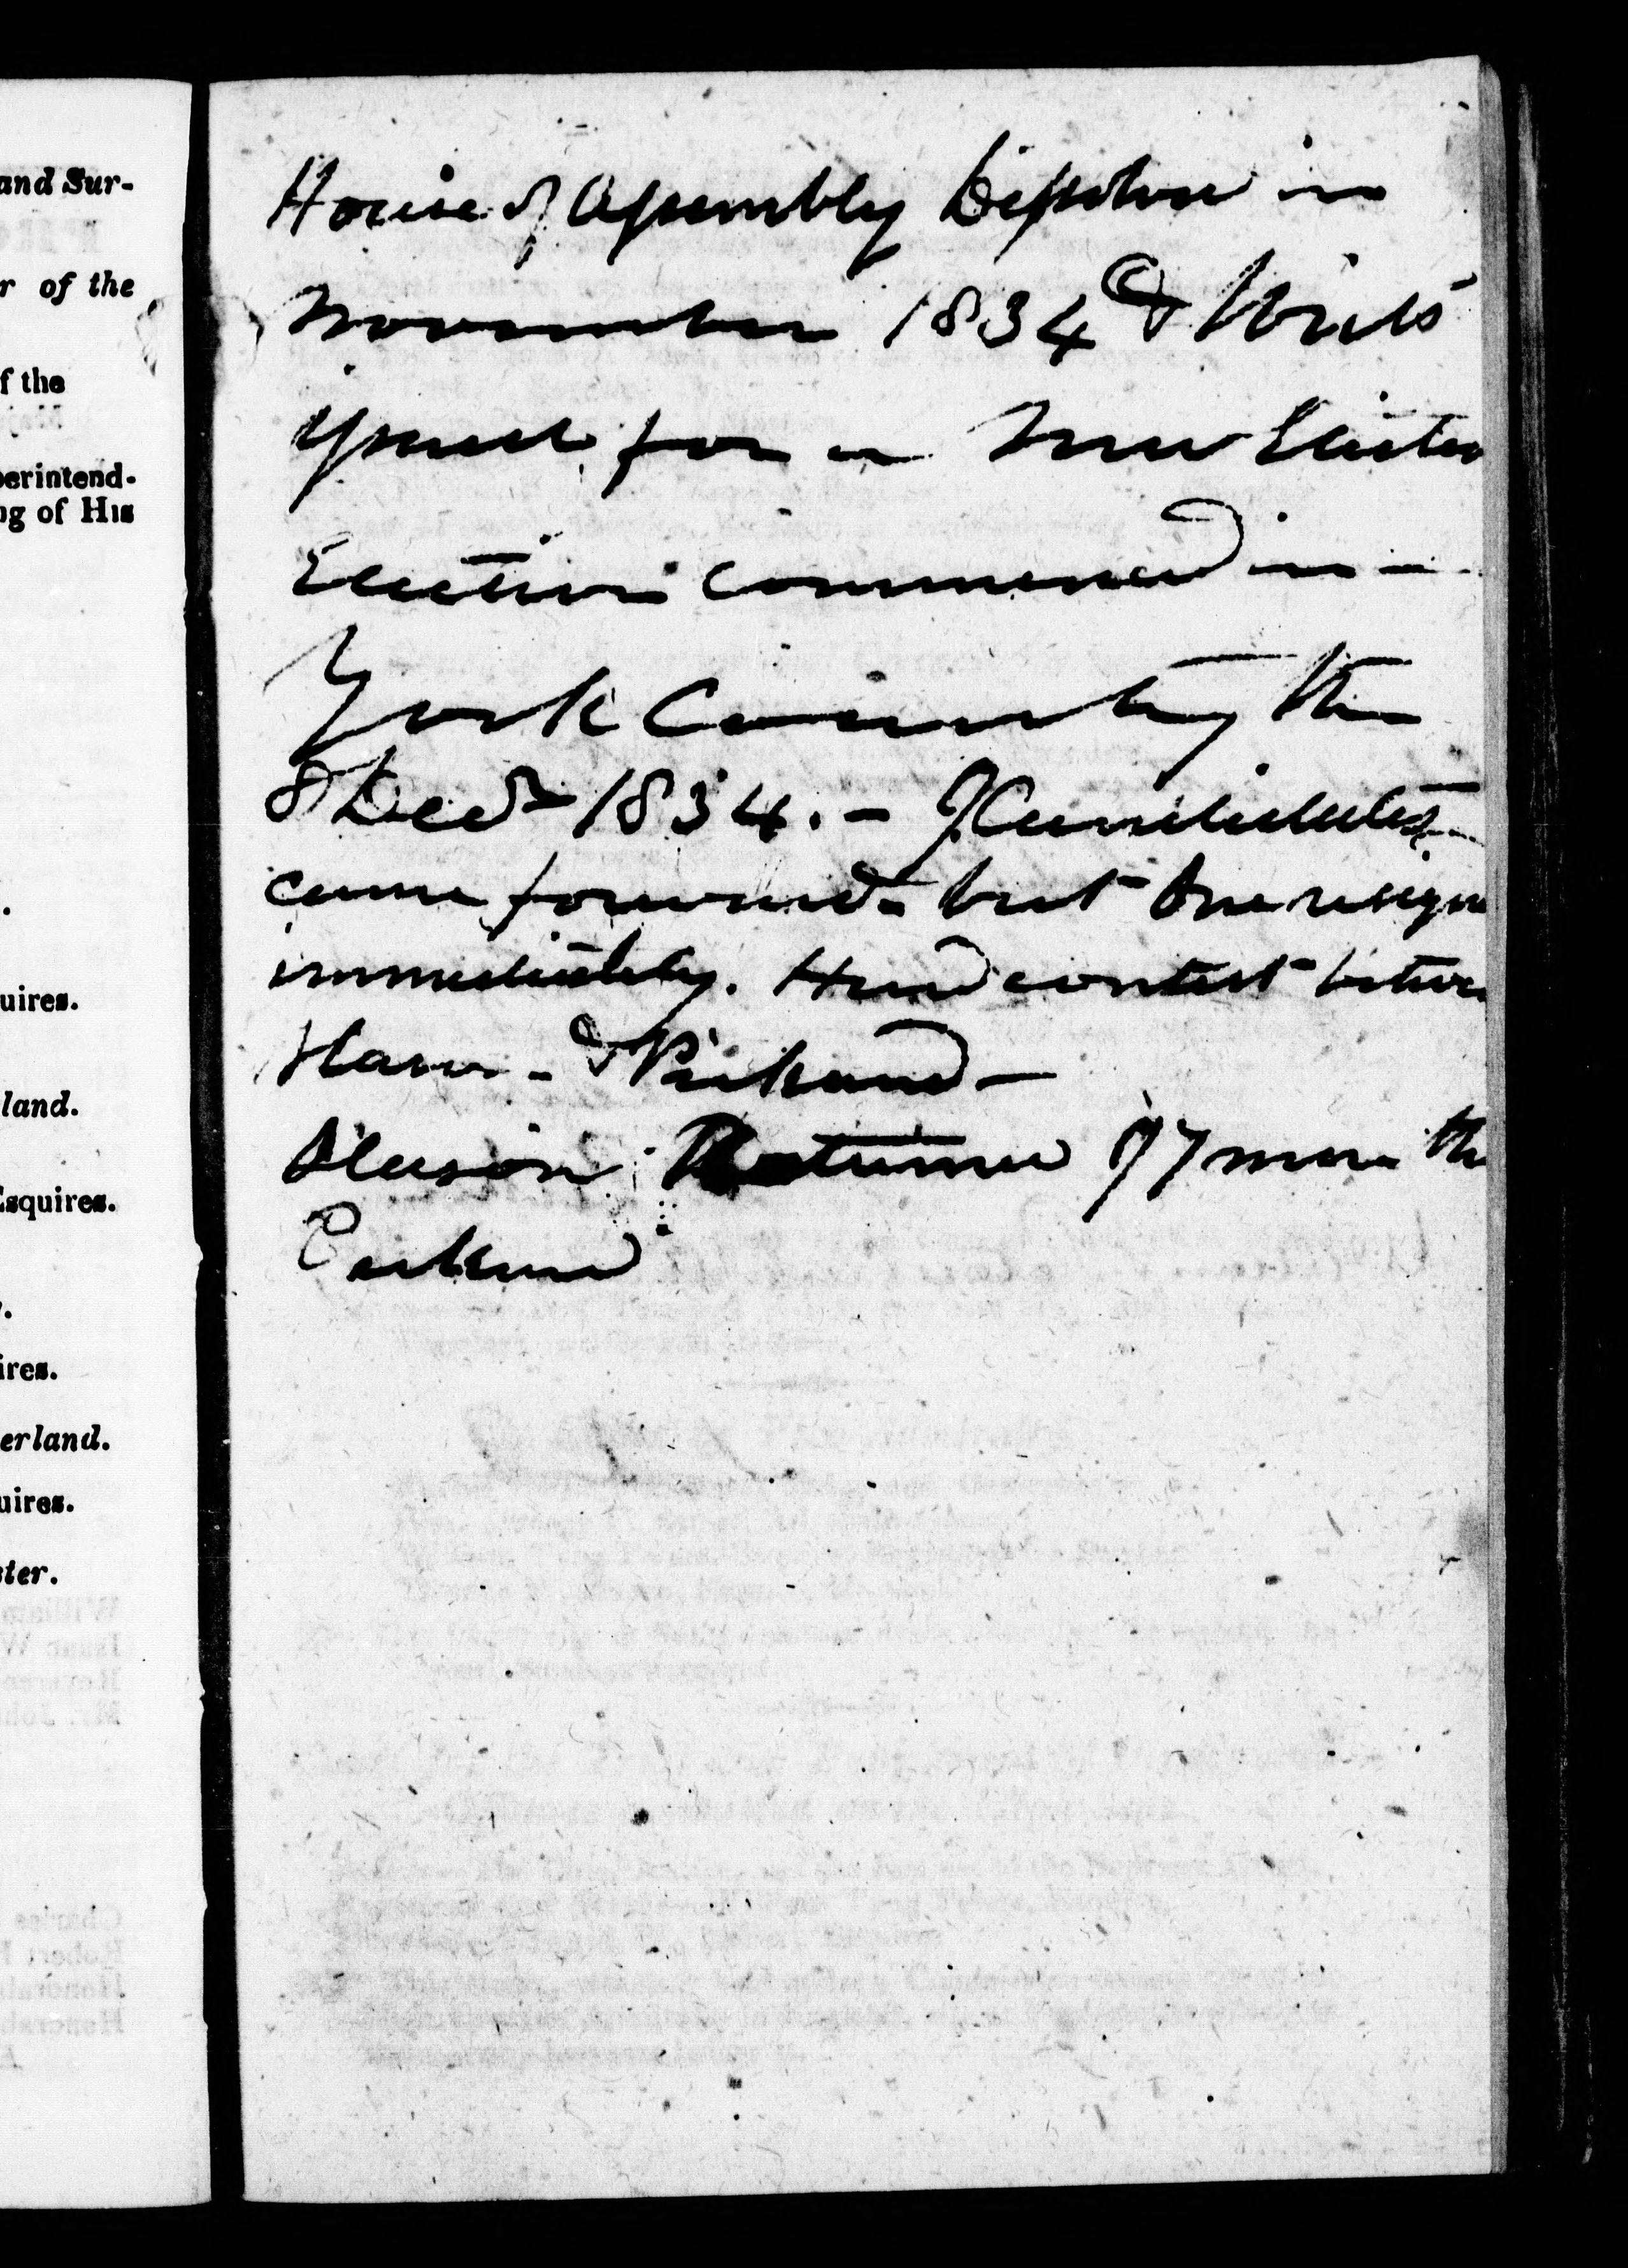 and Sur-
r of the
f the
perintend-
ng of His
uires.
land.
Esquires.
ires.
erland.
uires.
ster.
House of Assembly Dissolve in
November 1834 & Writs
issued for a New Election
Election commenced in
York County the
8 Decr 1834. - 9 Candidates
came forward - but One resigned
immediately. Hard contest between
&
97 more th